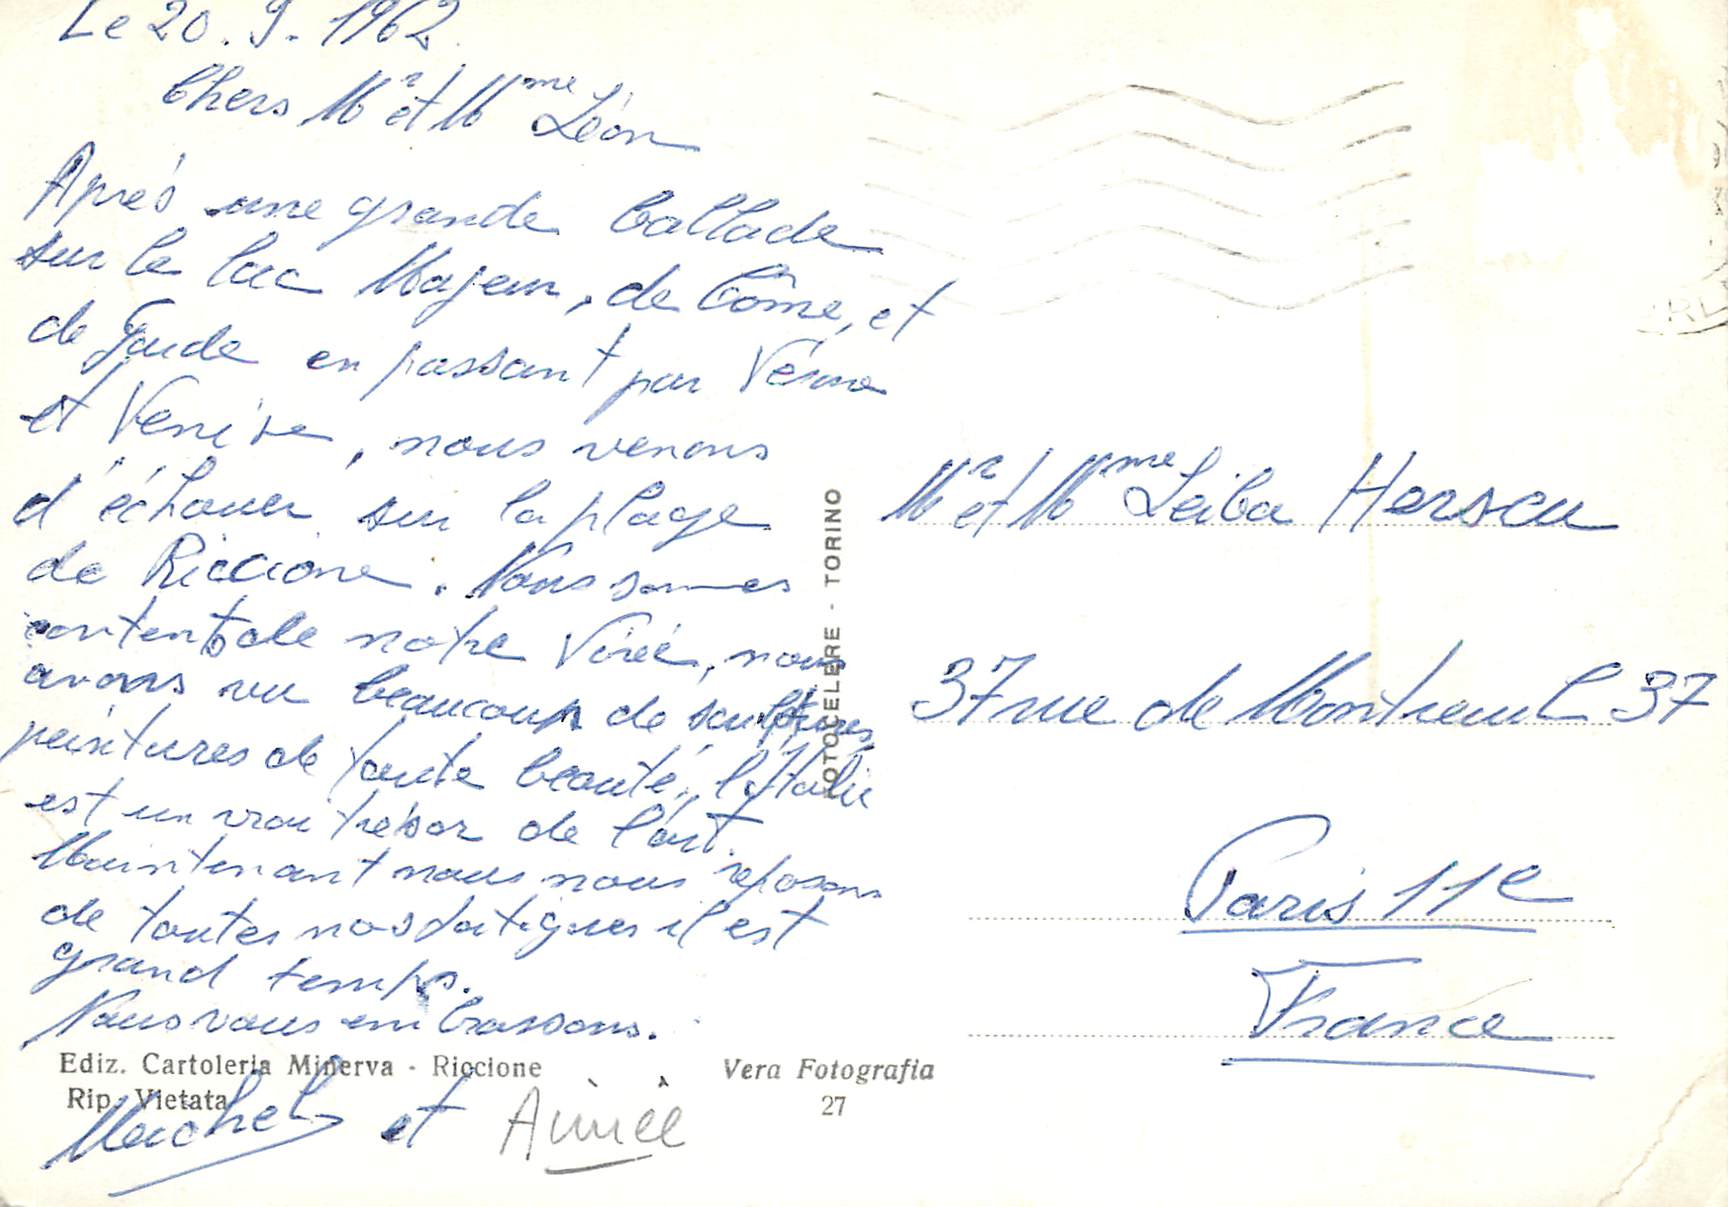 Le 20.9.1962
Chers Mr et Mme Léon
Après une grande ballade
sur le lac Majeur, de Côme, et
de Garde en passant par Vérone
et Venise, nous venons
d'échouer sur la plage
de Riccione. Nous sommes
contents de notre virée, nous
avons vu beaucoup de sculptures,
peintures de toute beauté, l'Italie
est un vrai trésor de l'art.
Maintenant nous nous reposons
de toutes nos fatigues il est
grand temps.
Nous vous embrassons.
et Aimée
Mr et Mme Leiba Herscu
37 rue de Montreuil 37
Paris 11e
France
FOTOCELERE - TORINO
Ediz. Cartoleria Minerva - Riccione
Rip. Vietata
Vera Fotografia
27